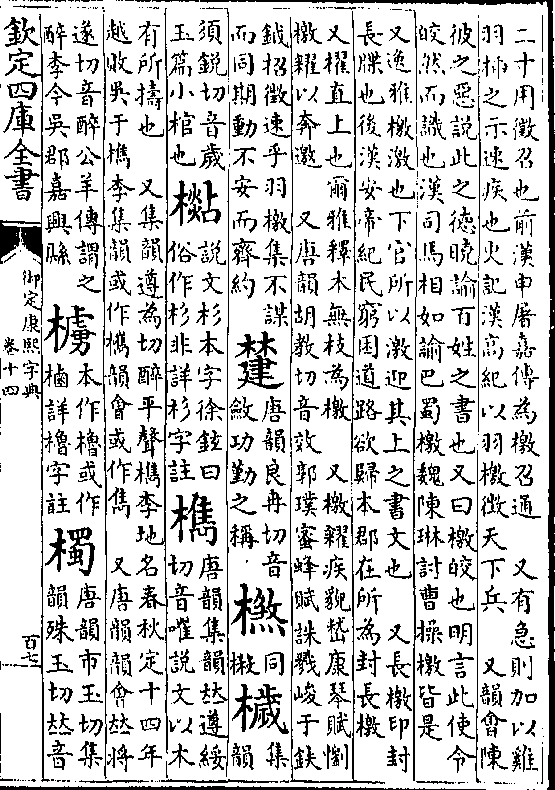 二十用徵召也前漢申屠嘉傳為檄召通　又有急則加以雞
羽揷之示速疾也史記漢高紀以羽檄徵天下兵　又韻會陳
彼之惡說此之德曉諭百姓之書也又曰檄皎也明言此使令
皎然而識也漢司馬相如諭巴蜀檄魏陳琳討曹操檄皆是
又逸雅檄激也下官所以激迎其上之書文也　又長檄印封
長牒也後漢安帝紀民窮困道路欲歸本郡在所為封長檄
又櫂直上也爾雅釋木無枝為檄　又檄糴疾貌嵇康琴賦惻
檄糴以奔邀　又唐韻胡教切音效郭璞蜜蜂賦誅戮峻于鈇
鉞招徵速乎羽檄集不謀
而同期動不安而齊約
𣞙
唐韻良冉切音
斂功勤之稱
橪
同
橪
檅
集
韻
須銳切音歲
玉篇小棺也
㯳
說文杉本字徐鉉曰
俗作杉非詳杉字註
檇
唐韻集韻𠀤遵綏
切音嗺說文以木
有所擣也　又集韻遵為切醉平聲檇李地名春秋定十四年
越敗吳于檇李集韻或作㰎韻會或作雋　又唐韻韻會𠀤將
遂切音醉公羊傳謂之
醉李今吳郡嘉興縣
㯭
本作櫓或作
樐詳櫓字註
㯮
唐韻市玉切集
韻殊玉切𠀤音
欽定四庫全書
御定康熙字典
卷十四